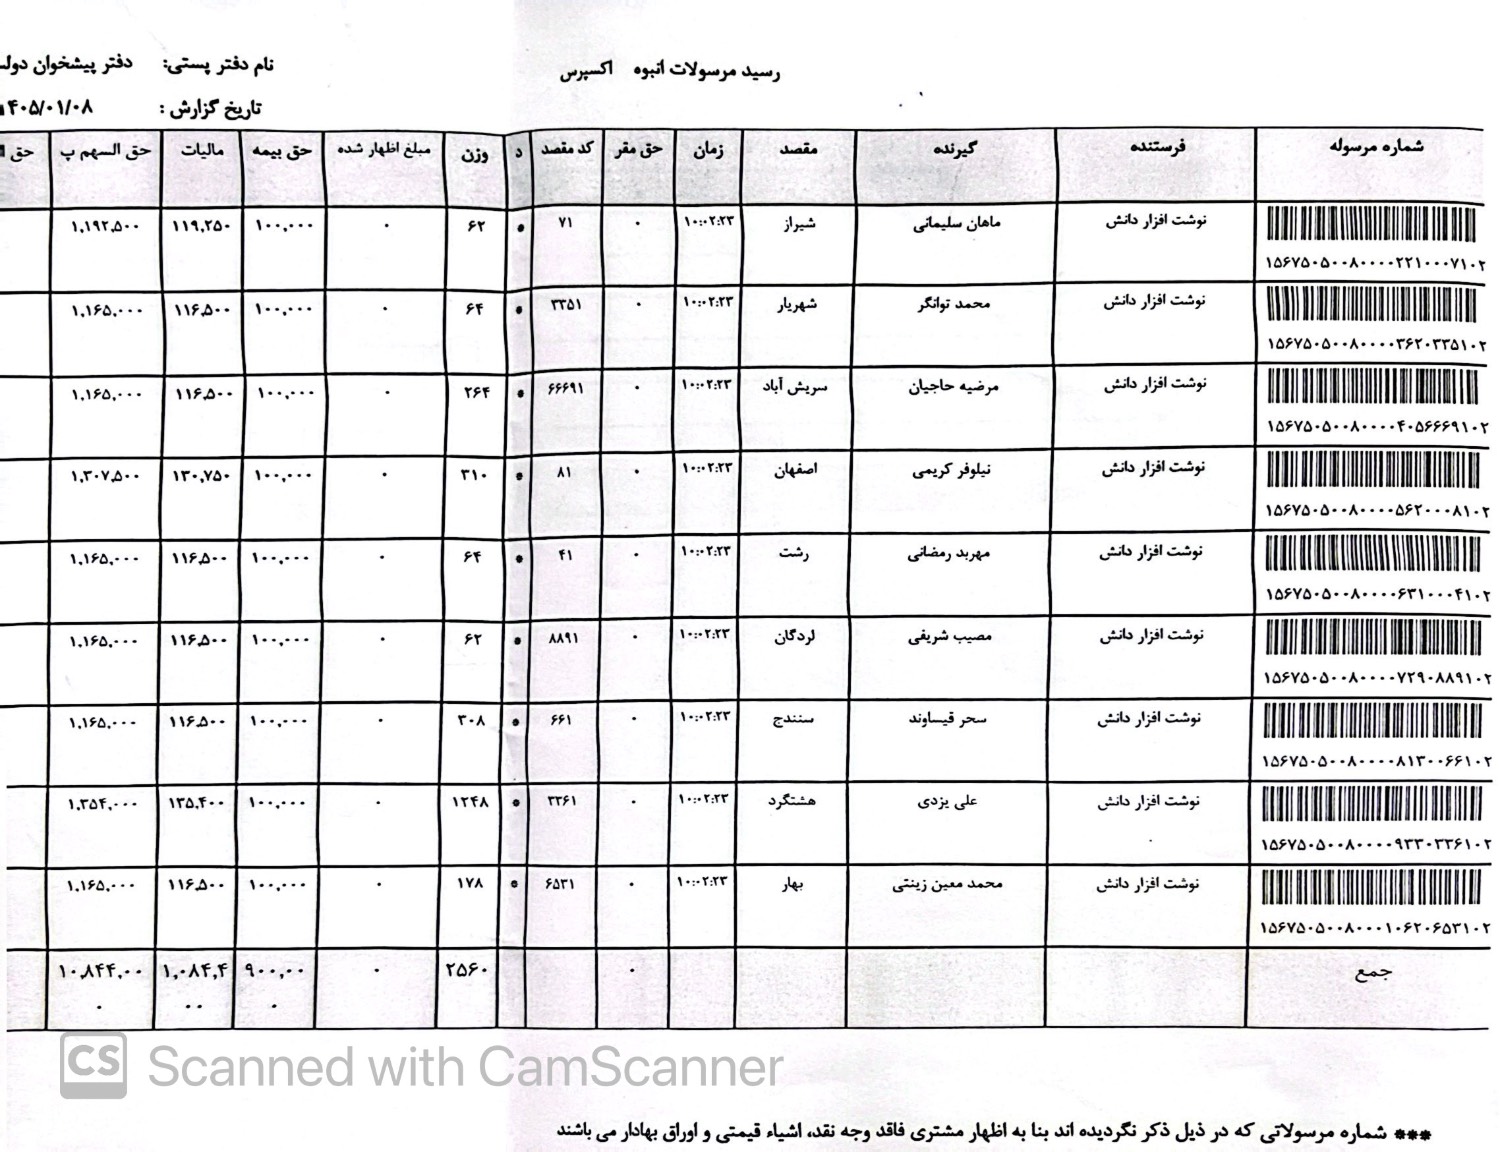 رسید مرسولات انبوه اکسپرس
نام دفتر پستی: دفتر پیشخوان
تاریخ گزارش : ۱۴۰۵/۰۱/۰۸
شماره مرسوله فرستنده گیرنده مقصد زمان حق مقر کد مقصد د وزن مبلغ اظهار شده حق بیمه مالیات حق السهم پ حق
نوشت افزار دانش ماهان سلیمانی شیراز ۱۰:۰۲:۲۳ ۰ ۷۱ * ۶۲ ۰ ۱۰۰,۰۰۰ ۱۱۹,۲۵۰ ۱,۱۹۲,۵۰۰
۱۵۶۷۵۰۵۰۰۸۰۰۰۰۲۲۱۰۰۰۷۱۰۲
نوشت افزار دانش محمد توانگر شهریار ۱۰:۰۲:۲۳ ۰ ۳۳۵۱ * ۶۴ ۰ ۱۰۰,۰۰۰ ۱۱۶,۵۰۰ ۱,۱۶۵,۰۰۰
۱۵۶۷۵۰۵۰۰۸۰۰۰۰۳۶۲۰۳۳۵۱۰۲
نوشت افزار دانش مرضیه حاجیان سریش آباد ۱۰:۰۲:۲۳ ۰ ۶۶۶۹۱ * ۲۶۴ ۰ ۱۰۰,۰۰۰ ۱۱۶,۵۰۰ ۱,۱۶۵,۰۰۰
۱۵۶۷۵۰۵۰۰۸۰۰۰۰۴۰۵۶۶۶۹۱۰۲
نوشت افزار دانش نیلوفر کریمی اصفهان ۱۰:۰۲:۲۳ ۰ ۸۱ * ۳۱۰ ۰ ۱۰۰,۰۰۰ ۱۳۰,۷۵۰ ۱,۳۰۷,۵۰۰
۱۵۶۷۵۰۵۰۰۸۰۰۰۰۵۶۲۰۰۰۸۱۰۲
نوشت افزار دانش مهرید رمضانی رشت ۱۰:۰۲:۲۳ ۰ ۴۱ * ۶۴ ۰ ۱۰۰,۰۰۰ ۱۱۶,۵۰۰ ۱,۱۶۵,۰۰۰
۱۵۶۷۵۰۵۰۰۸۰۰۰۰۶۳۱۰۰۰۴۱۰۲
نوشت افزار دانش مصیب شریفی لردگان ۱۰:۰۲:۲۳ ۰ ۸۸۹۱ * ۶۲ ۰ ۱۰۰,۰۰۰ ۱۱۶,۵۰۰ ۱,۱۶۵,۰۰۰
۱۵۶۷۵۰۵۰۰۸۰۰۰۰۷۲۹۰۸۸۹۱۰۲
نوشت افزار دانش سحر قیساوند سنندج ۱۰:۰۲:۲۳ ۰ ۶۶۱ * ۳۰۸ ۰ ۱۰۰,۰۰۰ ۱۱۶,۵۰۰ ۱,۱۶۵,۰۰۰
۱۵۶۷۵۰۵۰۰۸۰۰۰۰۸۱۳۰۰۶۶۱۰۲
نوشت افزار دانش علی یزدی هشتگرد ۱۰:۰۲:۲۳ ۰ ۳۳۶۱ * ۱۲۴۸ ۰ ۱۰۰,۰۰۰ ۱۳۵,۴۰۰ ۱,۳۵۴,۰۰۰
۱۵۶۷۵۰۵۰۰۸۰۰۰۰۹۳۳۰۳۳۶۱۰۲
نوشت افزار دانش محمد معین زینتی بهار ۱۰:۰۲:۲۳ ۰ ۶۵۳۱ * ۱۷۸ ۰ ۱۰۰,۰۰۰ ۱۱۶,۵۰۰ ۱,۱۶۵,۰۰۰
۱۵۶۷۵۰۵۰۰۸۰۰۰۱۰۶۲۰۶۵۳۱۰۲
جمع ۰ ۲۵۶۰ ۰ ۹۰۰,۰۰ ۱,۰۸۴,۴ ۱۰,۸۴۴,۰۰
۰ ۰۰ ۰
CS Scanned with CamScanner
*** شماره مرسولاتی که در ذیل ذکر نگردیده اند بنا به اظهار مشتری فاقد وجه نقد، اشیاء قیمتی و اوراق بهادار می باشند